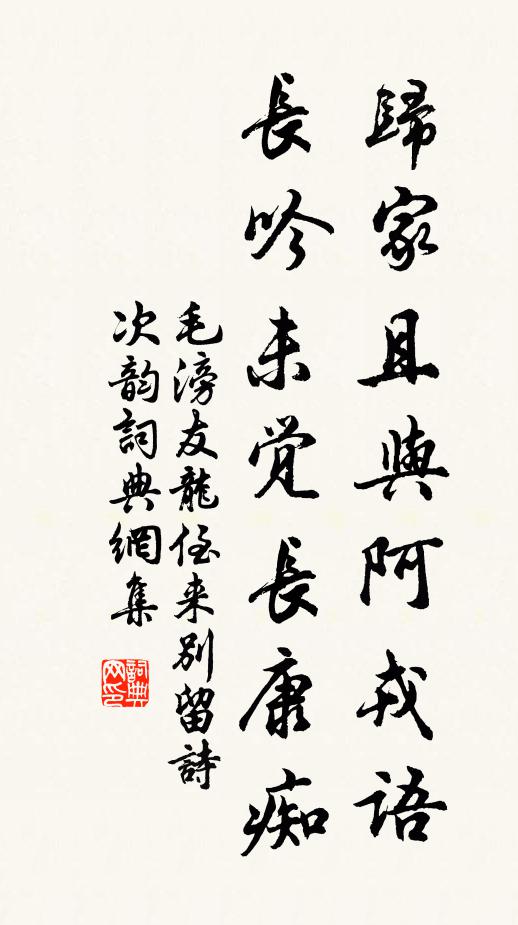 歸家且與阿戎語
長吟未覺長康痴
毛滂友龍侄来別留詩
次韵詞典網集
詞典网印